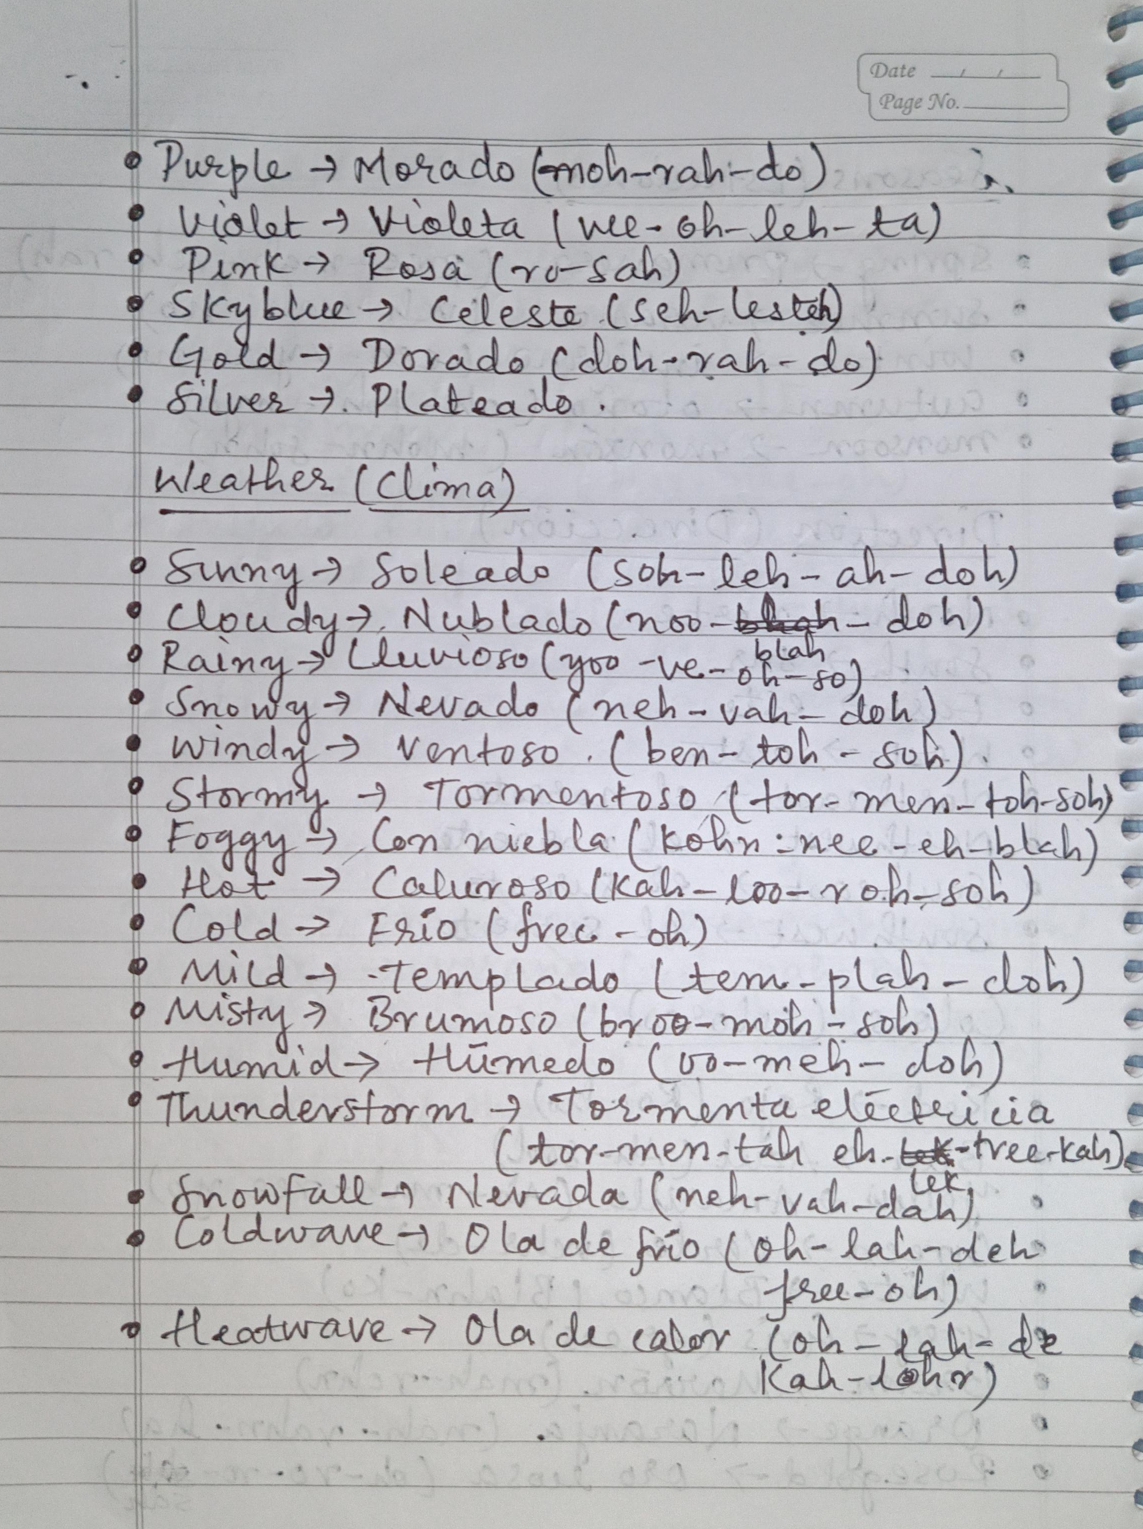 Date / /
Page No.
• Purple → Morado (moh-rah-do)
• Violet → Violeta (vee-oh-leh-ta)
• Pink → Rosa (ro-sah)
• Skyblue → Celeste (seh-lesteh)
• Gold → Dorado (doh-rah-do)
• Silver → Plateado.
Weather (Clima)
• Sunny → Soleado (soh-leh-ah-doh)
• Cloudy → Nublado (noo-blah-doh)
• Rainy → Lluvioso (yoo-ve-oh-so)
• Snowy → Nevado (neh-vah-doh)
• Windy → Ventoso. (ben-toh-soh).
• Stormy → Tormentoso (tor-men-toh-soh)
• Foggy → Con niebla (kohn-nee-eh-blah)
• Hot → Caluroso (kah-loo-roh-soh)
• Cold → Frío (free-oh)
• Mild → Templado (tem-plah-doh)
• Misty → Brumoso (broo-moh-soh)
• Humid → Húmedo (oo-meh-doh)
• Thunderstorm → Tormenta eléctricia
(tor-men-tah eh-lek-tree-kah)
• Snowfall → Nevada (neh-vah-dah)
• Coldwave → Ola de frío (oh-lah-deh
free-oh)
• Heatwave → Ola de calor (oh-lah-de
kah-lohr)